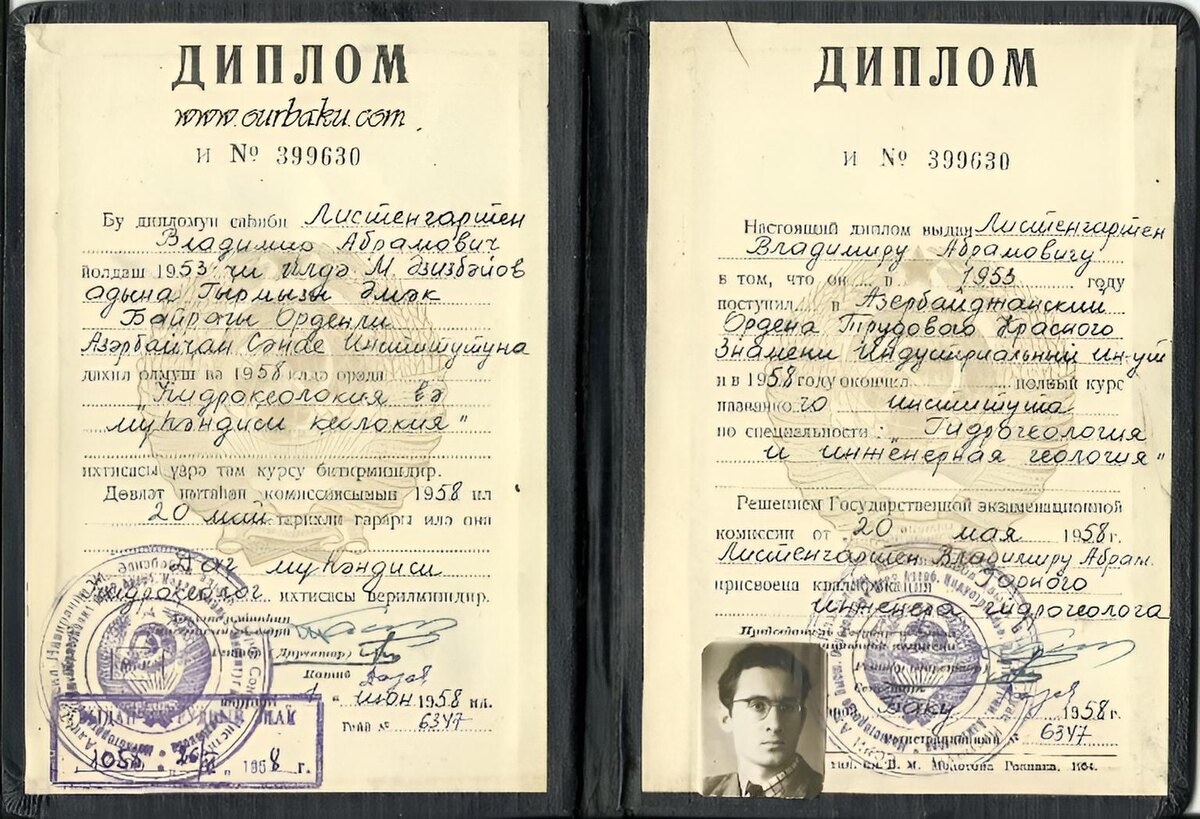 ДИПЛОМ
www.ourbaku.com
И № 399630
Бу дипломун саһиби Листенгартен
Владимир Абрамович
йолдаш 1953 чи илдә М. Әзизбәйов
адына Гырмызы Әмәк
Байрағы Орденли
Азәрбайҹан Сәнае Институтуна
дахил олмуш вә 1958 илдә орада
"Һидроҝеолоҝия вә
мүһәндиси ҝеолоҝия"
ихтисасы үзрә там курсу битирмишдир.
Дөвләт имтаһан комиссиясынын 1958 ил
20 май тарихли гарары илә она
Дағ мүһәндиси
һидроҝеолог ихтисасы верилмишдир.
(Директор)
Катиб
июн 1958 ил.
6347
1958 г.
ДИПЛОМ
И № 399630
Настоящий диплом выдан Листенгартен
Владимиру Абрамовичу
в том, что он в 1953 году
поступил в Азербайджанский
Ордена Трудового Красного
Знамени Индустриальный ин-ут
и в 1958 году окончил полный курс
названного института
по специальности: "Гидрогеология
и инженерная геология"
Решением Государственной экзаменационной
комиссии от 20 мая 1958 г.
Листенгартен Владимиру Абрам.
присвоена квалификация Горного
инженера гидрогеолога
Баку 1958 г.
Регистрационный № 6347